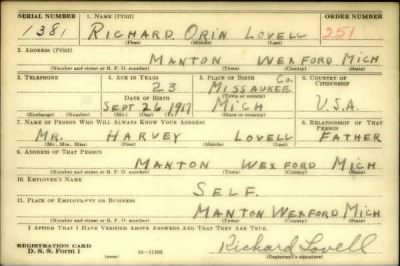 SERIAL NUMBER 1. NAME (Print) ORDER NUMBER
1381 RICHARD ORIN LOVELL 251
(First) (Middle) (Last)
2. ADDRESS (Print)
MANTON WEXFORD MICH
(Number and street or R. F. D. number) (Town) (County) (State)
3. TELEPHONE 4. AGE IN YEARS 5. PLACE OF BIRTH 6. COUNTRY OF CITIZENSHIP
23 MISSAUKEE Co.
DATE OF BIRTH (Town or county)
SEPT. 26 1917 MICH U.S.A.
(Exchange) (Number) (Mo.) (Day) (Yr.) (State or country)
7. NAME OF PERSON WHO WILL ALWAYS KNOW YOUR ADDRESS 8. RELATIONSHIP OF THAT PERSON
MR. HARVEY LOVELL FATHER
(Mr., Mrs., Miss) (First) (Middle) (Last)
9. ADDRESS OF THAT PERSON
MANTON WEXFORD MICH
(Number and street or R. F. D. number) (Town) (County) (State)
10. EMPLOYER'S NAME
SELF.
11. PLACE OF EMPLOYMENT OR BUSINESS
MANTON WEXFORD MICH
(Number and street or R. F. D. number) (Town) (County) (State)
I AFFIRM THAT I HAVE VERIFIED ABOVE ANSWERS AND THAT THEY ARE TRUE.
REGISTRATION CARD
D. S. S. Form 1
(over) Richard Lovell
(Registrant's signature)